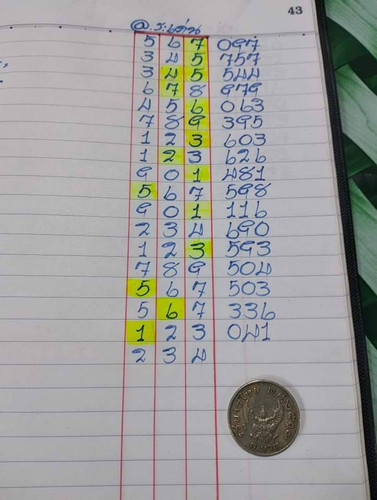 43
5 6 7 097
3 4 5 757
3 4 5 544
6 7 8 979
4 5 6 063
7 8 9 395
1 2 3 603
1 2 3 626
9 0 1 481
5 6 7 598
9 0 1 116
2 3 4 690
1 2 3 593
7 8 9 504
5 6 7 503
5 6 7 336
1 2 3 041
2 3 4